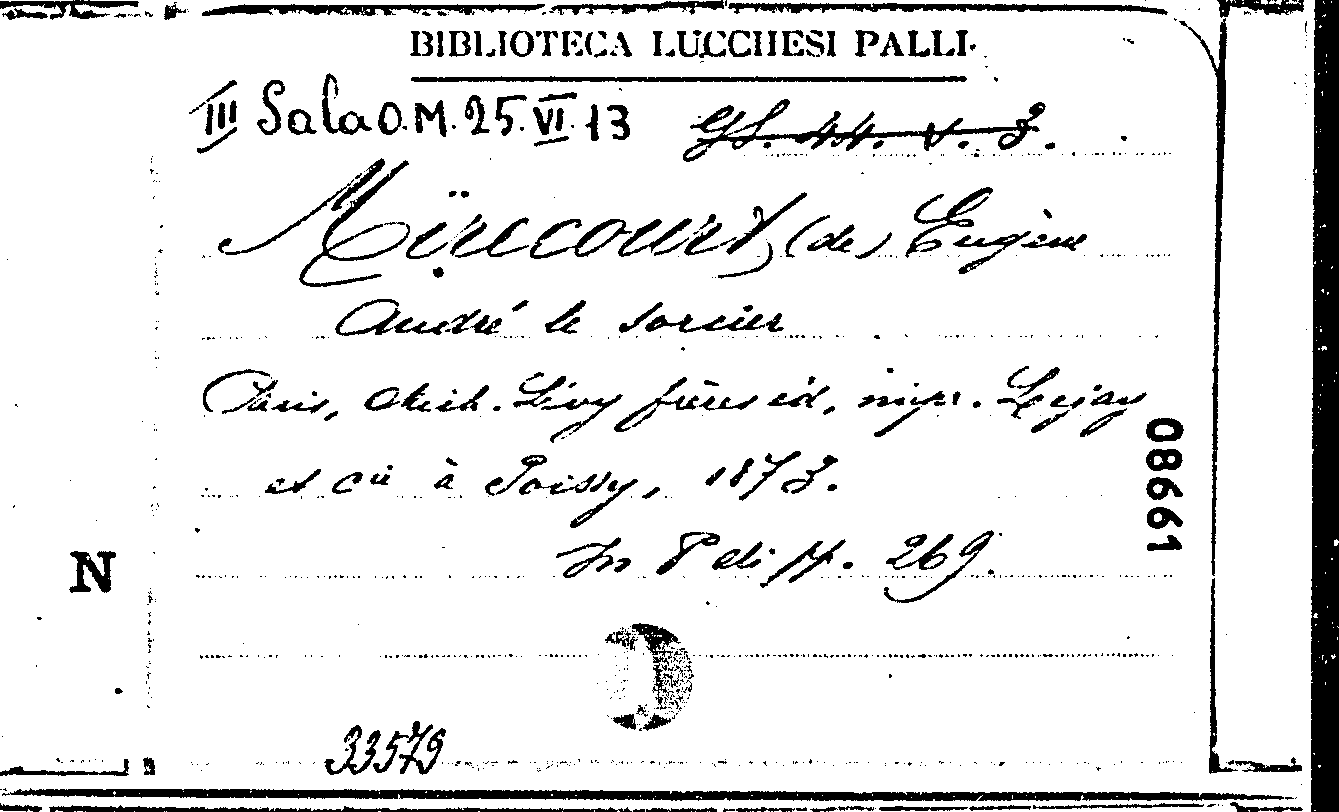 BIBLIOTECA LUCCHESI PALLI
III Sala O.M. 25. VI. 13 
Mirecourt (de) Eugène
André le sorcier
Paris, Mich. Lévy frères éd., impr. Lejay
et Cie à Poissy, 1873.
In 8° di pp. 269.
08661
N
33579